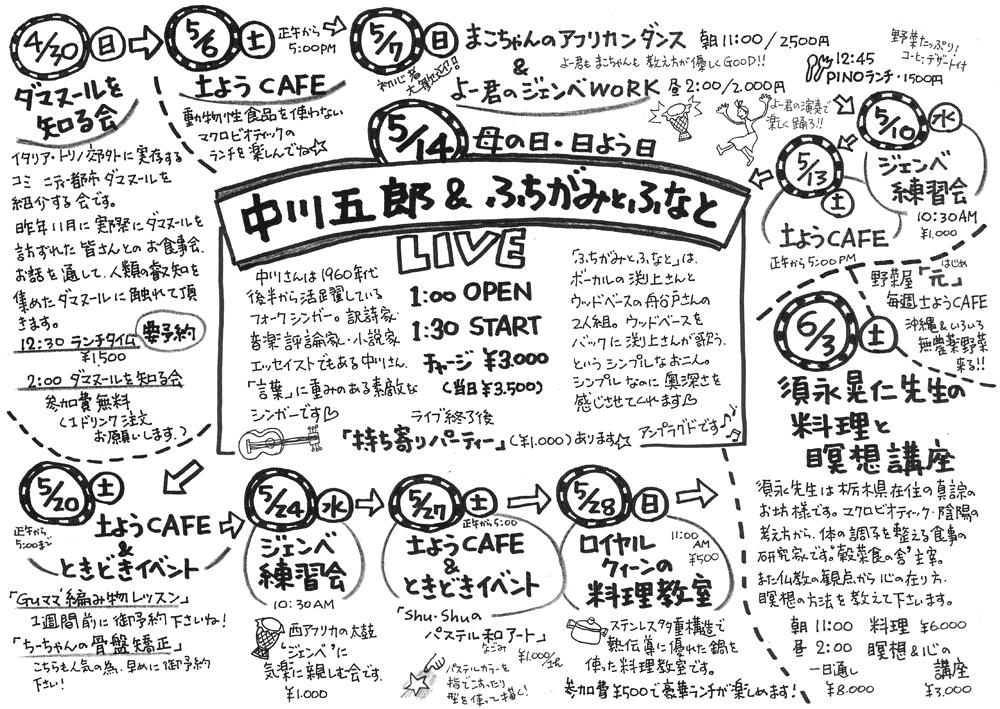 4/30 日
ダマヌールを
知る会
イタリア・トリノ郊外に実存する
コミュニティ都市ダマヌールを
紹介する会です。
昨年11月に実際にダマヌールを
訪ずれた皆さんとのお食事会、
お話を通して、人類の叡知を
集めたダマヌールに触れて頂
きます。
要予約
12:30 ランチタイム
¥1500
2:00 ダマヌールを知る会
参加費無料
(1ドリンク注文
お願いします。)
5/6 土
正午から
5:00PM
土ようCAFE
動物性食品を使わない
マクロビオティックの
ランチを楽しんでね☆
5/7 日
初心者
大歓迎!!
まこちゃんのアフリカンダンス 朝11:00/2500円
よー君もまこちゃんも教え方が優しくGOOD!!
&
よー君のジェンベWORK 昼2:00/2.000円
よー君の演奏で
楽しく踊ろ!!
野菜たっぷり!
コーヒー・デザート付
12:45
PINOランチ・1500円
5/10 水
ジェンベ
練習会
10:30AM
¥1.000
5/13 土
土ようCAFE
正午から5:00PM
5/14 母の日・日よう日
中川五郎 & ふちがみとふなと
LIVE
中川さんは1960年代
後半から活躍している
フォークシンガー。訳詩家・
音楽評論家・小説家
エッセイストでもある中川さん。
「言葉」に重みのある素敵な
シンガーです♡
1:00 OPEN
1:30 START
チャージ ¥3.000
(当日¥3.500)
ライブ終了後
「持ち寄りパーティー」(¥1.000)あります☆
「ふちがみとふなと」は、
ボーカルの渕上さんと
ウッドベースの舟戸さんの
2人組。ウッドベースを
バックに渕上さんが歌う、
というシンプルなお二人。
シンプルなのに奥深さを
感じさせてくれます♡
アンプラグドです♪
5/20 土
正午から
5:00まで
土ようCAFE
&
ときどきイベント
「Guママ編み物レッスン」
1週間前に御予約下さいね!
「ちーちゃんの骨盤矯正」
こちらも人気の為、早めに御予約
下さい!
5/24 水
ジェンベ
練習会
10:30AM
西アフリカの太鼓
"ジェンベ"に
気楽に親しむ会です。
¥1.000
5/27 土
正午から5:00
土ようCAFE
&
ときどきイベント
「Shu・Shuの
パステル和アート」
なごみ
¥1.000/2h
パステルカラーを
指でこすったり
型を使って描く!
5/28 日
ロイヤル
クィーンの
料理教室
11:00
AM
¥500
ステンレス7重構造で
熱伝導に優れた鍋を
使った料理教室です。
参加費¥500で豪華ランチが楽しめます!
野菜屋「元」
はじめ
毎週土ようCAFE
沖縄&いろいろ
無農薬野菜
来る!!
6/3 土
須永晃仁先生の
料理と
瞑想講座
須永先生は栃木県在住の真諒の
お坊様です。マクロビオティック・陰陽の
考え方から、体の調子を整える食事の
研究家です。"穀菜食の舎"主宰。
また仏教の観点から心の在り方、
瞑想の方法を教えて下さいます。
朝11:00 料理 ¥6.000
昼2:00 瞑想&心の
講座
一日通し
¥8.000 ¥3.000